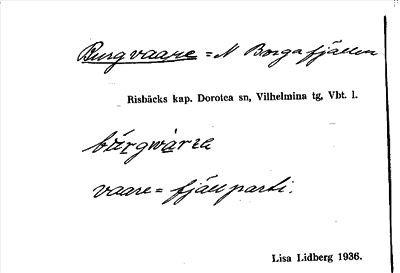 Burgvaare = N Borgafjällen
Risbäcks kap. Dorotea sn, Vilhelmina tg, Vbt. l.
bu̇rgwàrra
vaare = fjällparti.
Lisa Lidberg 1936.